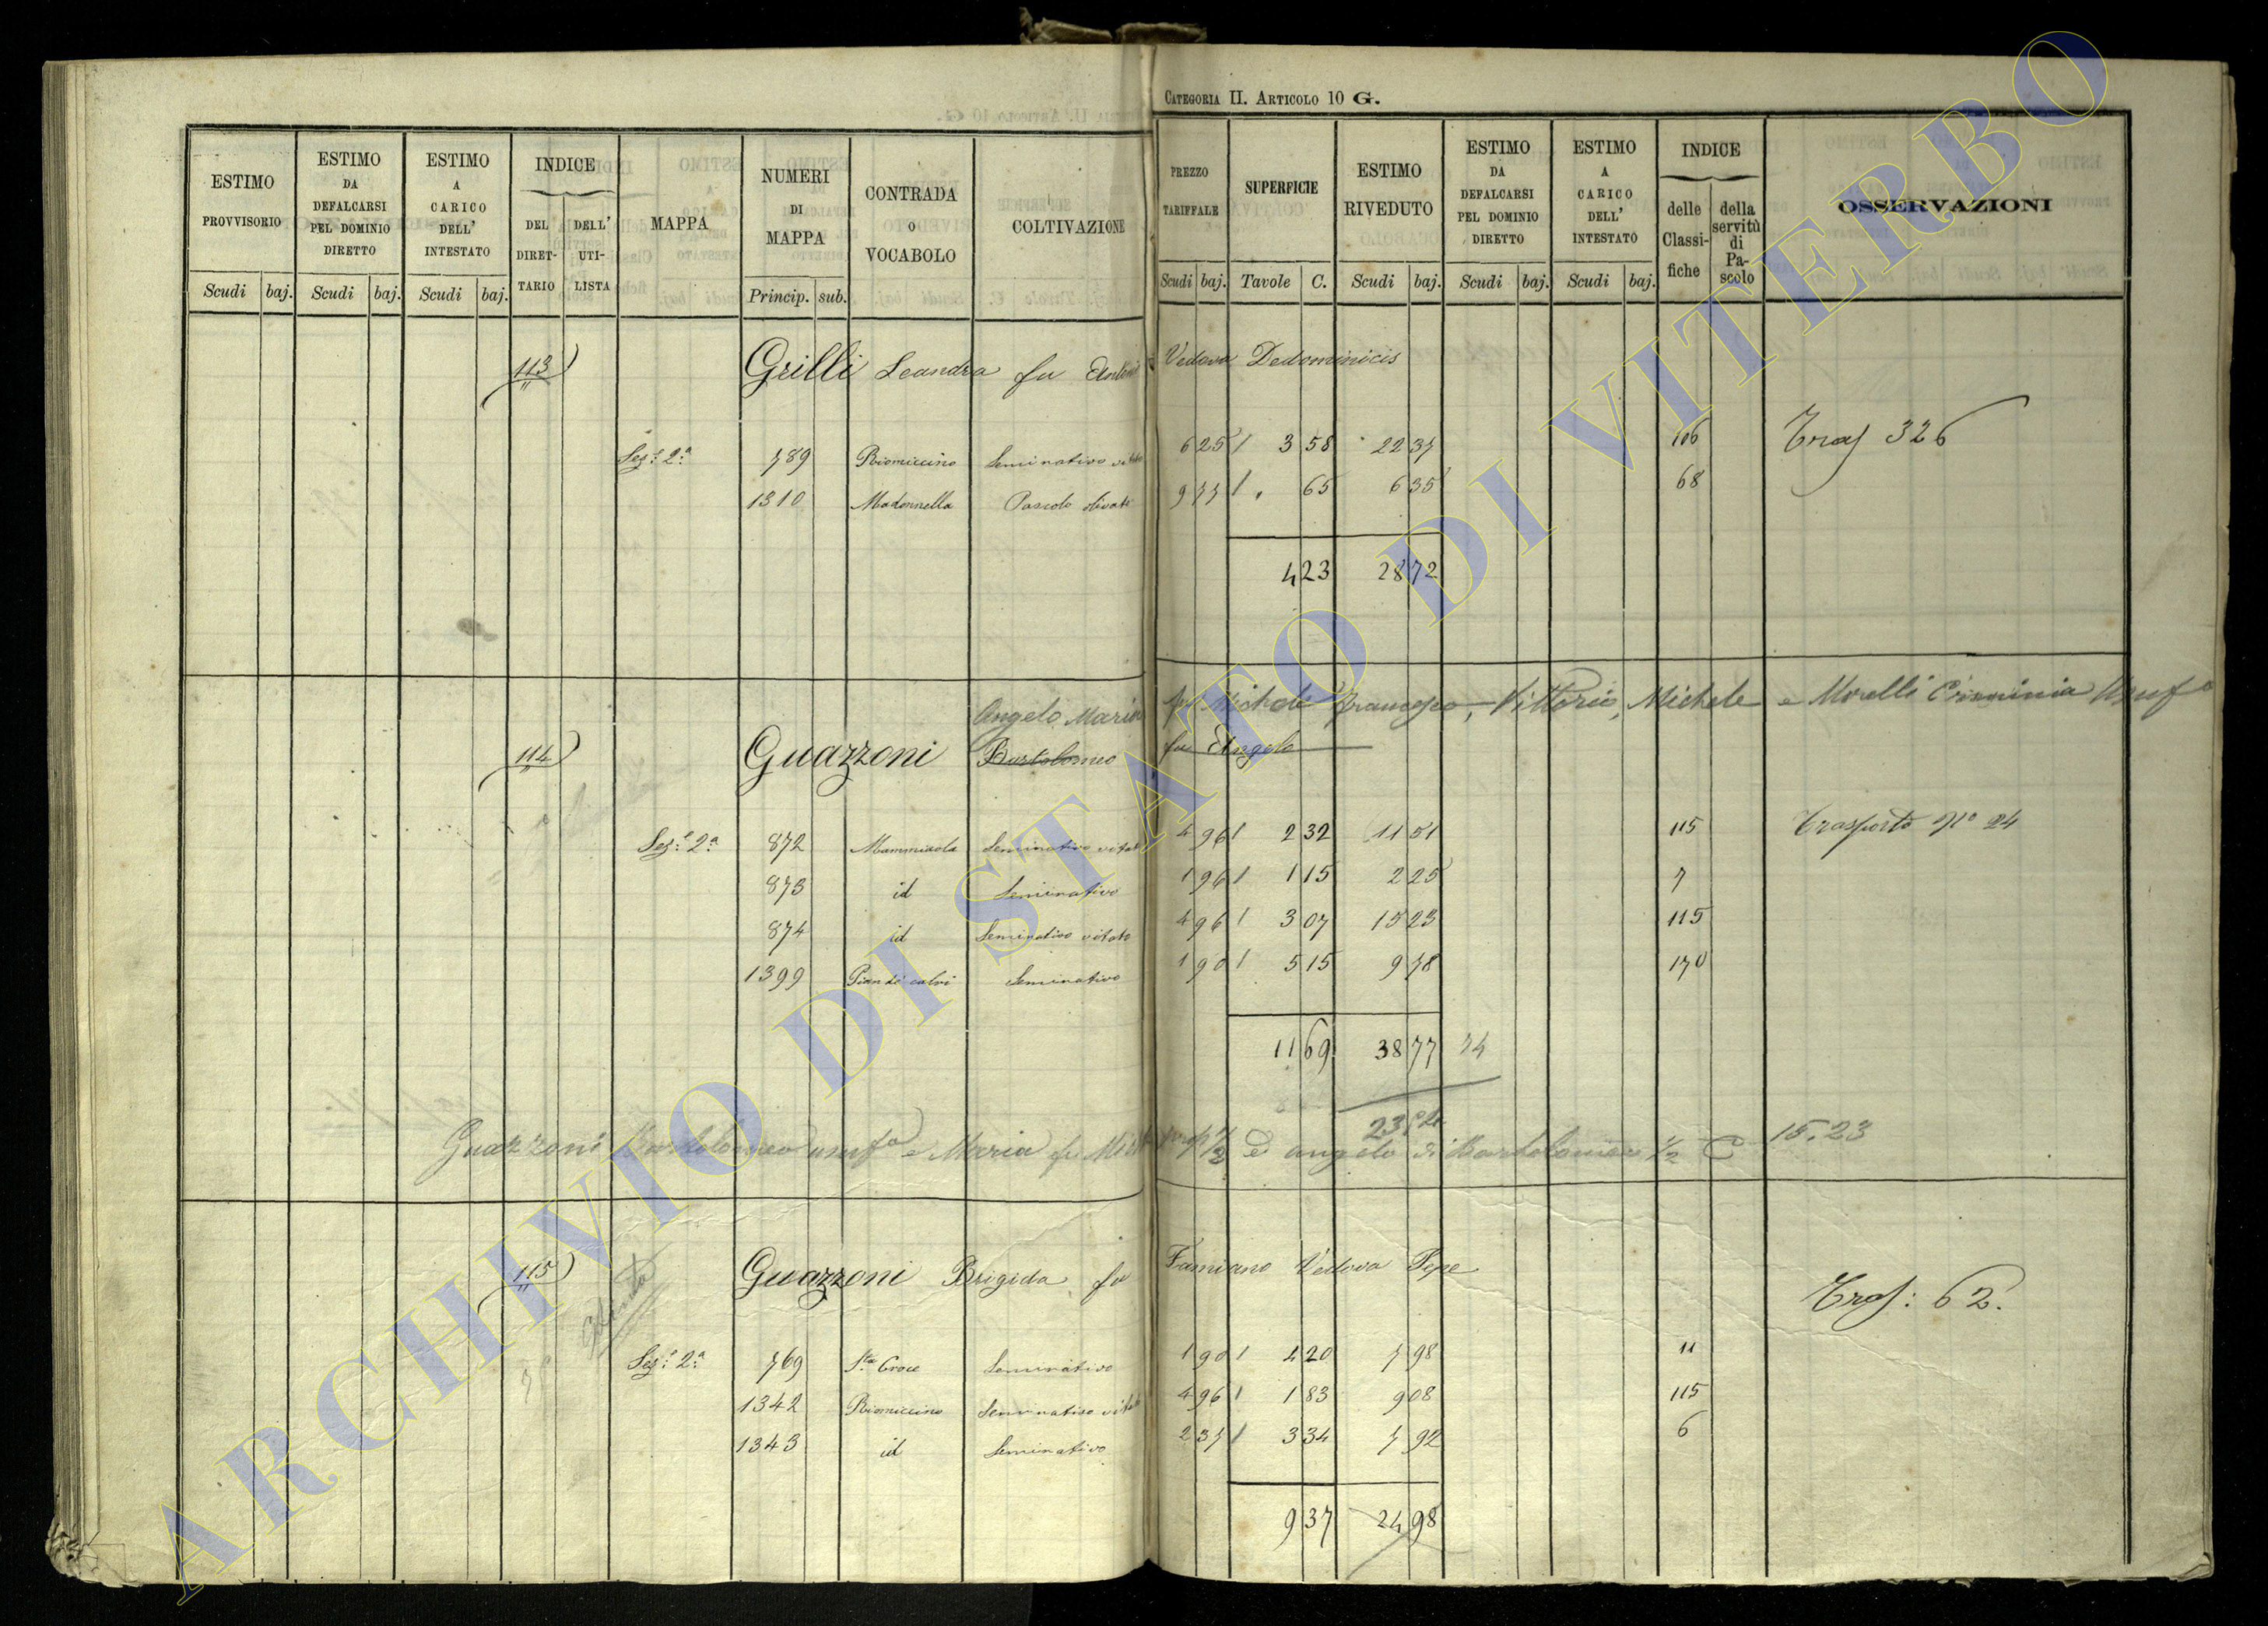 CATEGORIA II. ARTICOLO 10 G.
ESTIMO PROVVISORIO
ESTIMO DA DEFALCARSI PEL DOMINIO DIRETTO
ESTIMO A CARICO DELL' INTESTATO
INDICE
DEL DIRETTARIO
DELL' UTILISTA
MAPPA
NUMERI DI MAPPA
CONTRADA O VOCABOLO
COLTIVAZIONE
PREZZO TARIFFALE
SUPERFICIE
ESTIMO RIVEDUTO
ESTIMO DA DEFALCARSI PEL DOMINIO DIRETTO
ESTIMO A CARICO DELL' INTESTATO
INDICE
delle Classifiche
della servitù di Pascolo
OSSERVAZIONI
Scudi baj. Scudi baj. Scudi baj. Princip. sub. Scudi baj. Tavole C. Scudi baj. Scudi baj. Scudi baj.
113 Grilli Leandra fu Antonio Vedova Dedominicis
Sez.e 2.a 789 Riomiccino Seminativo vitato 6 25 3 58 22 37 106 Trasf 326
1310 Madonnella Pascolo olivato 9 77 65 6 35 68
4 23 28 72
Angelo Maria fu Michele Francesco, Vittorio, Michele e Morelli Erminia Usuf.a
114 Guazzoni Bartolomeo fu Angelo
Sez.e 2.a 872 Mammiaola Seminativo vitato 4 96 2 32 11 51 115 Trasporto N° 24
873 id Seminativo 1 96 1 15 2 25 7
874 id Seminativo vitato 4 96 3 07 15 23 115
1399 Pian de' calvi Seminativo 1 90 5 15 9 78 170
11 69 38 77 74
23.54
Guazzoni Bartolomeo usuf.o e Maria fu Mich prop 1/2 ed angelo di Bartolomeo 1/2 15.23
115 Guazzoni Brigida fu Famiano Vedova Pepe
Traf: 62.
Sez.e 2.a 769 S.ta Croce Seminativo 1 90 4 20 7 98 11
1342 Riomiccino Seminativo vitato 4 96 1 83 9 08 115
1343 id Seminativo 2 37 3 34 7 92 6
9 37 24 98
ARCHIVIO DI STATO DI VITERBO